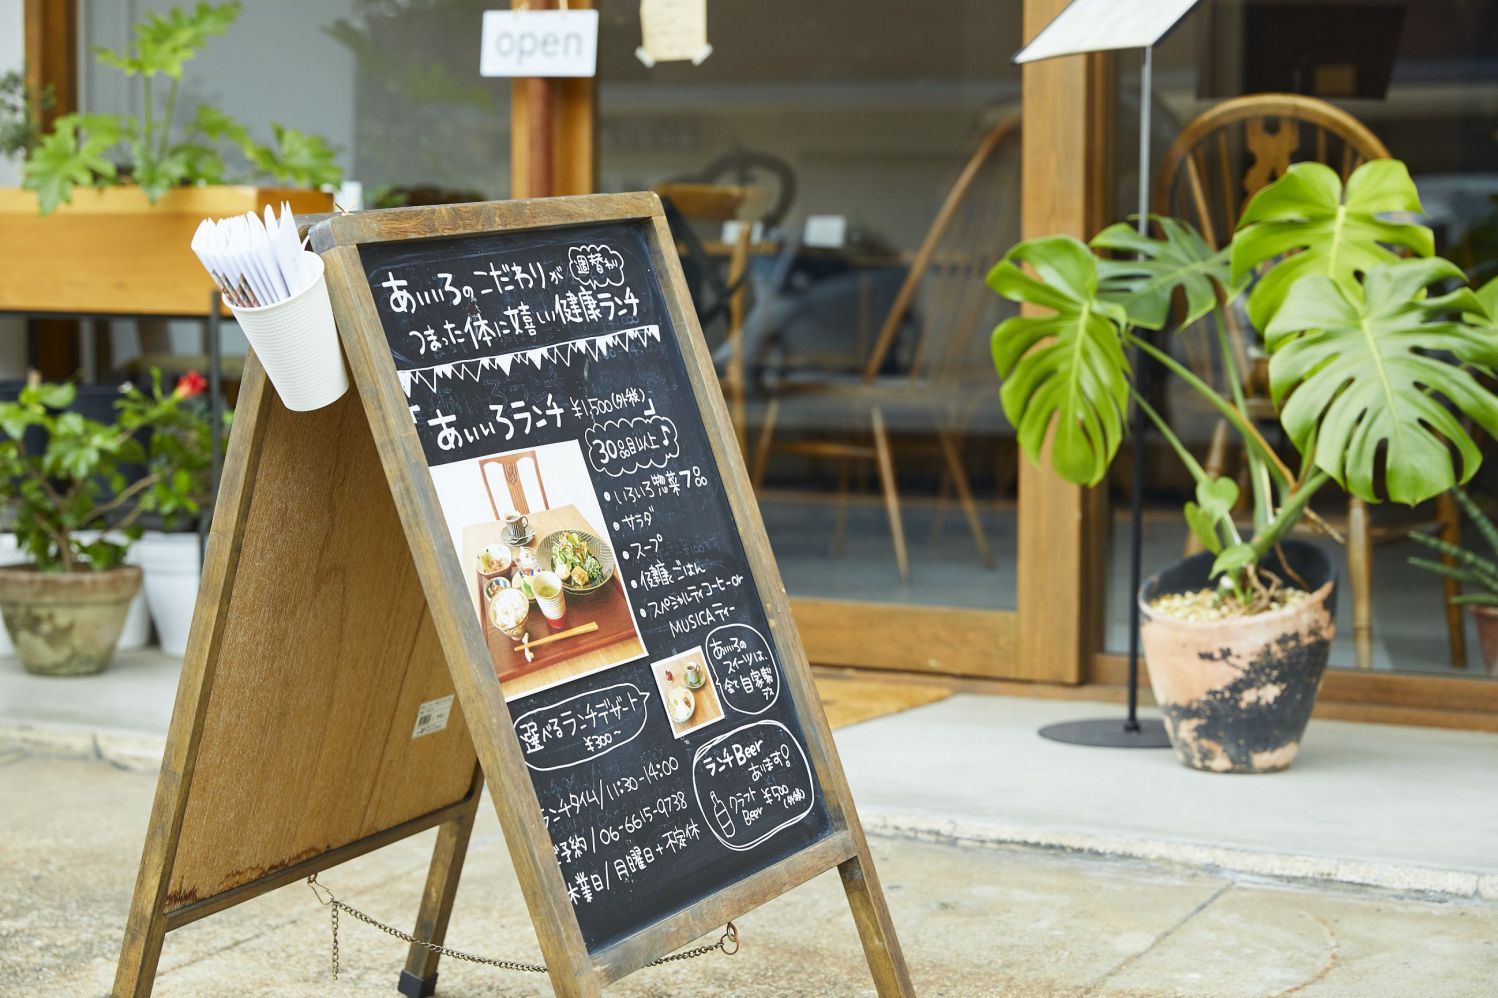 open
あいいろのこだわりが
週替わり
つまった体に嬉しい健康ランチ
「あいいろランチ ¥1,500(外税)」
30品目以上♪
・いろいろ惣菜7品
・サラダ
・スープ
・健康ごはん
・スペシャルティコーヒーor
MUSICAティー
あいいろの
スイーツは、
全て自家製
デス
選べるランチデザート
¥300〜
ランチBeer
あります!
クラフト
Beer ¥500(外税)
ランチタイム/11:30-14:00
ご予約/06-6615-9738
休業日/月曜日+不定休